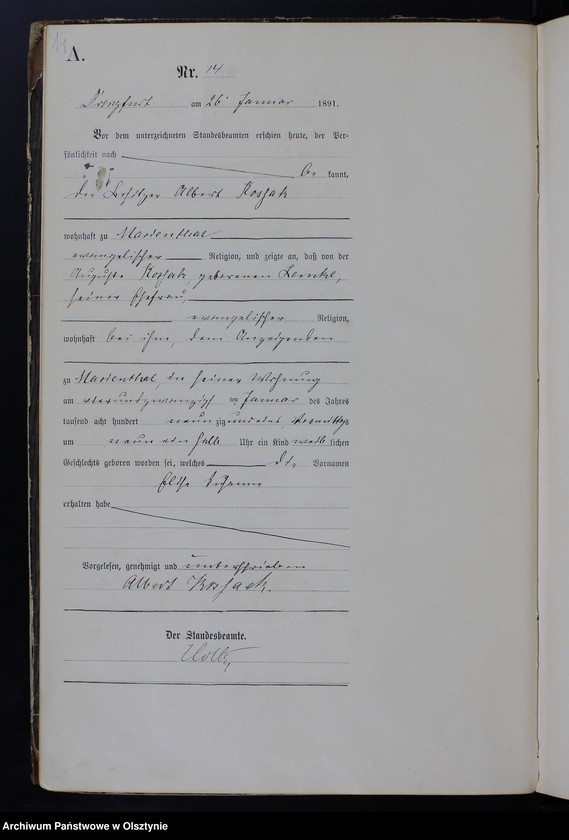 14
A.
Nr. 14
Drengfurt am 26 Januar 1891.
Vor dem unterzeichneten Standesbeamten erschien heute, der Per-
sönlichkeit nach
be kannt,
der Besitzer Albert Kossak
wohnhaft zu Marienthal
evangelischer Religion, und zeigte an, daß von der
Auguste Kossak, geborenen Lemke,
seiner Ehefrau,
evangelischer Religion,
wohnhaft bei ihm, dem Anzeigenden
zu Marienthal, in seiner Wohnung
am vierundzwanzigsten Januar des Jahrs
tausend acht hundert neun zig und eins, Vormittags
um neun ein halb Uhr ein Kind weib lichen
Geschlechts geboren worden sei, welches die Vornamen
Elise
erhalten habe
Vorgelesen, genehmigt und unterschrieben
Albert Kossack.
Der Standesbeamte.
Archiwum Państwowe w Olsztynie